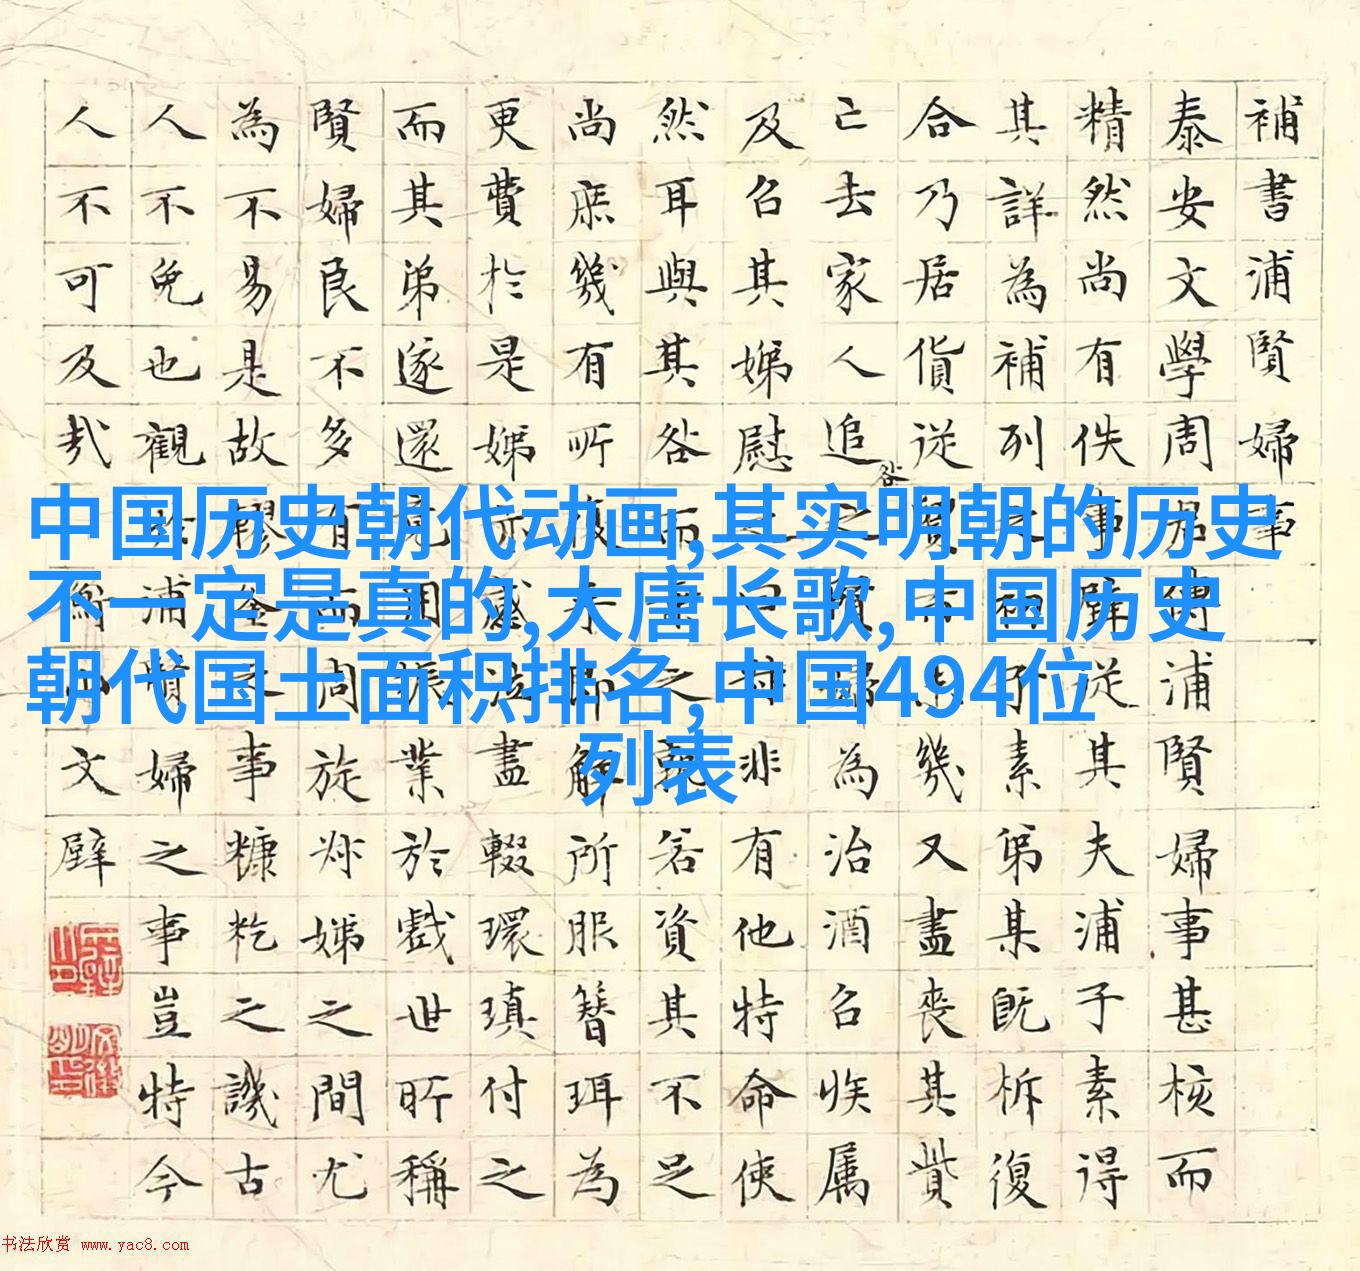 補書浦賢婦事
泰安文學周傳浦賢婦事甚核而
精然尚有佚事從其夫浦子素得
其詳為補列素弟某既析復
合乃居貨從賈幾又盡喪其貲
已去家人追之婦為治酒召族属
及召其娣慰非有他特命侠
然耳與其咎而之若資其不足
尚庶幾有所解所服簪珥為
更費於是娣亦盛盡輟環瑱付之
而其弟遂還振業於戲世所稱
賢婦良不多有而周旋娣之間尤
為不易是故事糠籺之譏古
人不免也觀於浦賢婦之事豈特今
人不可及哉文壁
中国历史朝代动画,其实明朝的历史
不一定是真的,大唐长歌,中国历史
朝代国土面积排名,中国494位
列表
书法欣赏 www.yac8.com